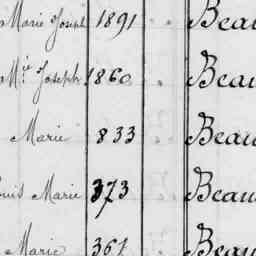 Marie Joseph 1891 Beau
Mie Joseph 1860 Beau
Marie 833 Beau
ouis Marie 373 Beau
Marie 361 Beau